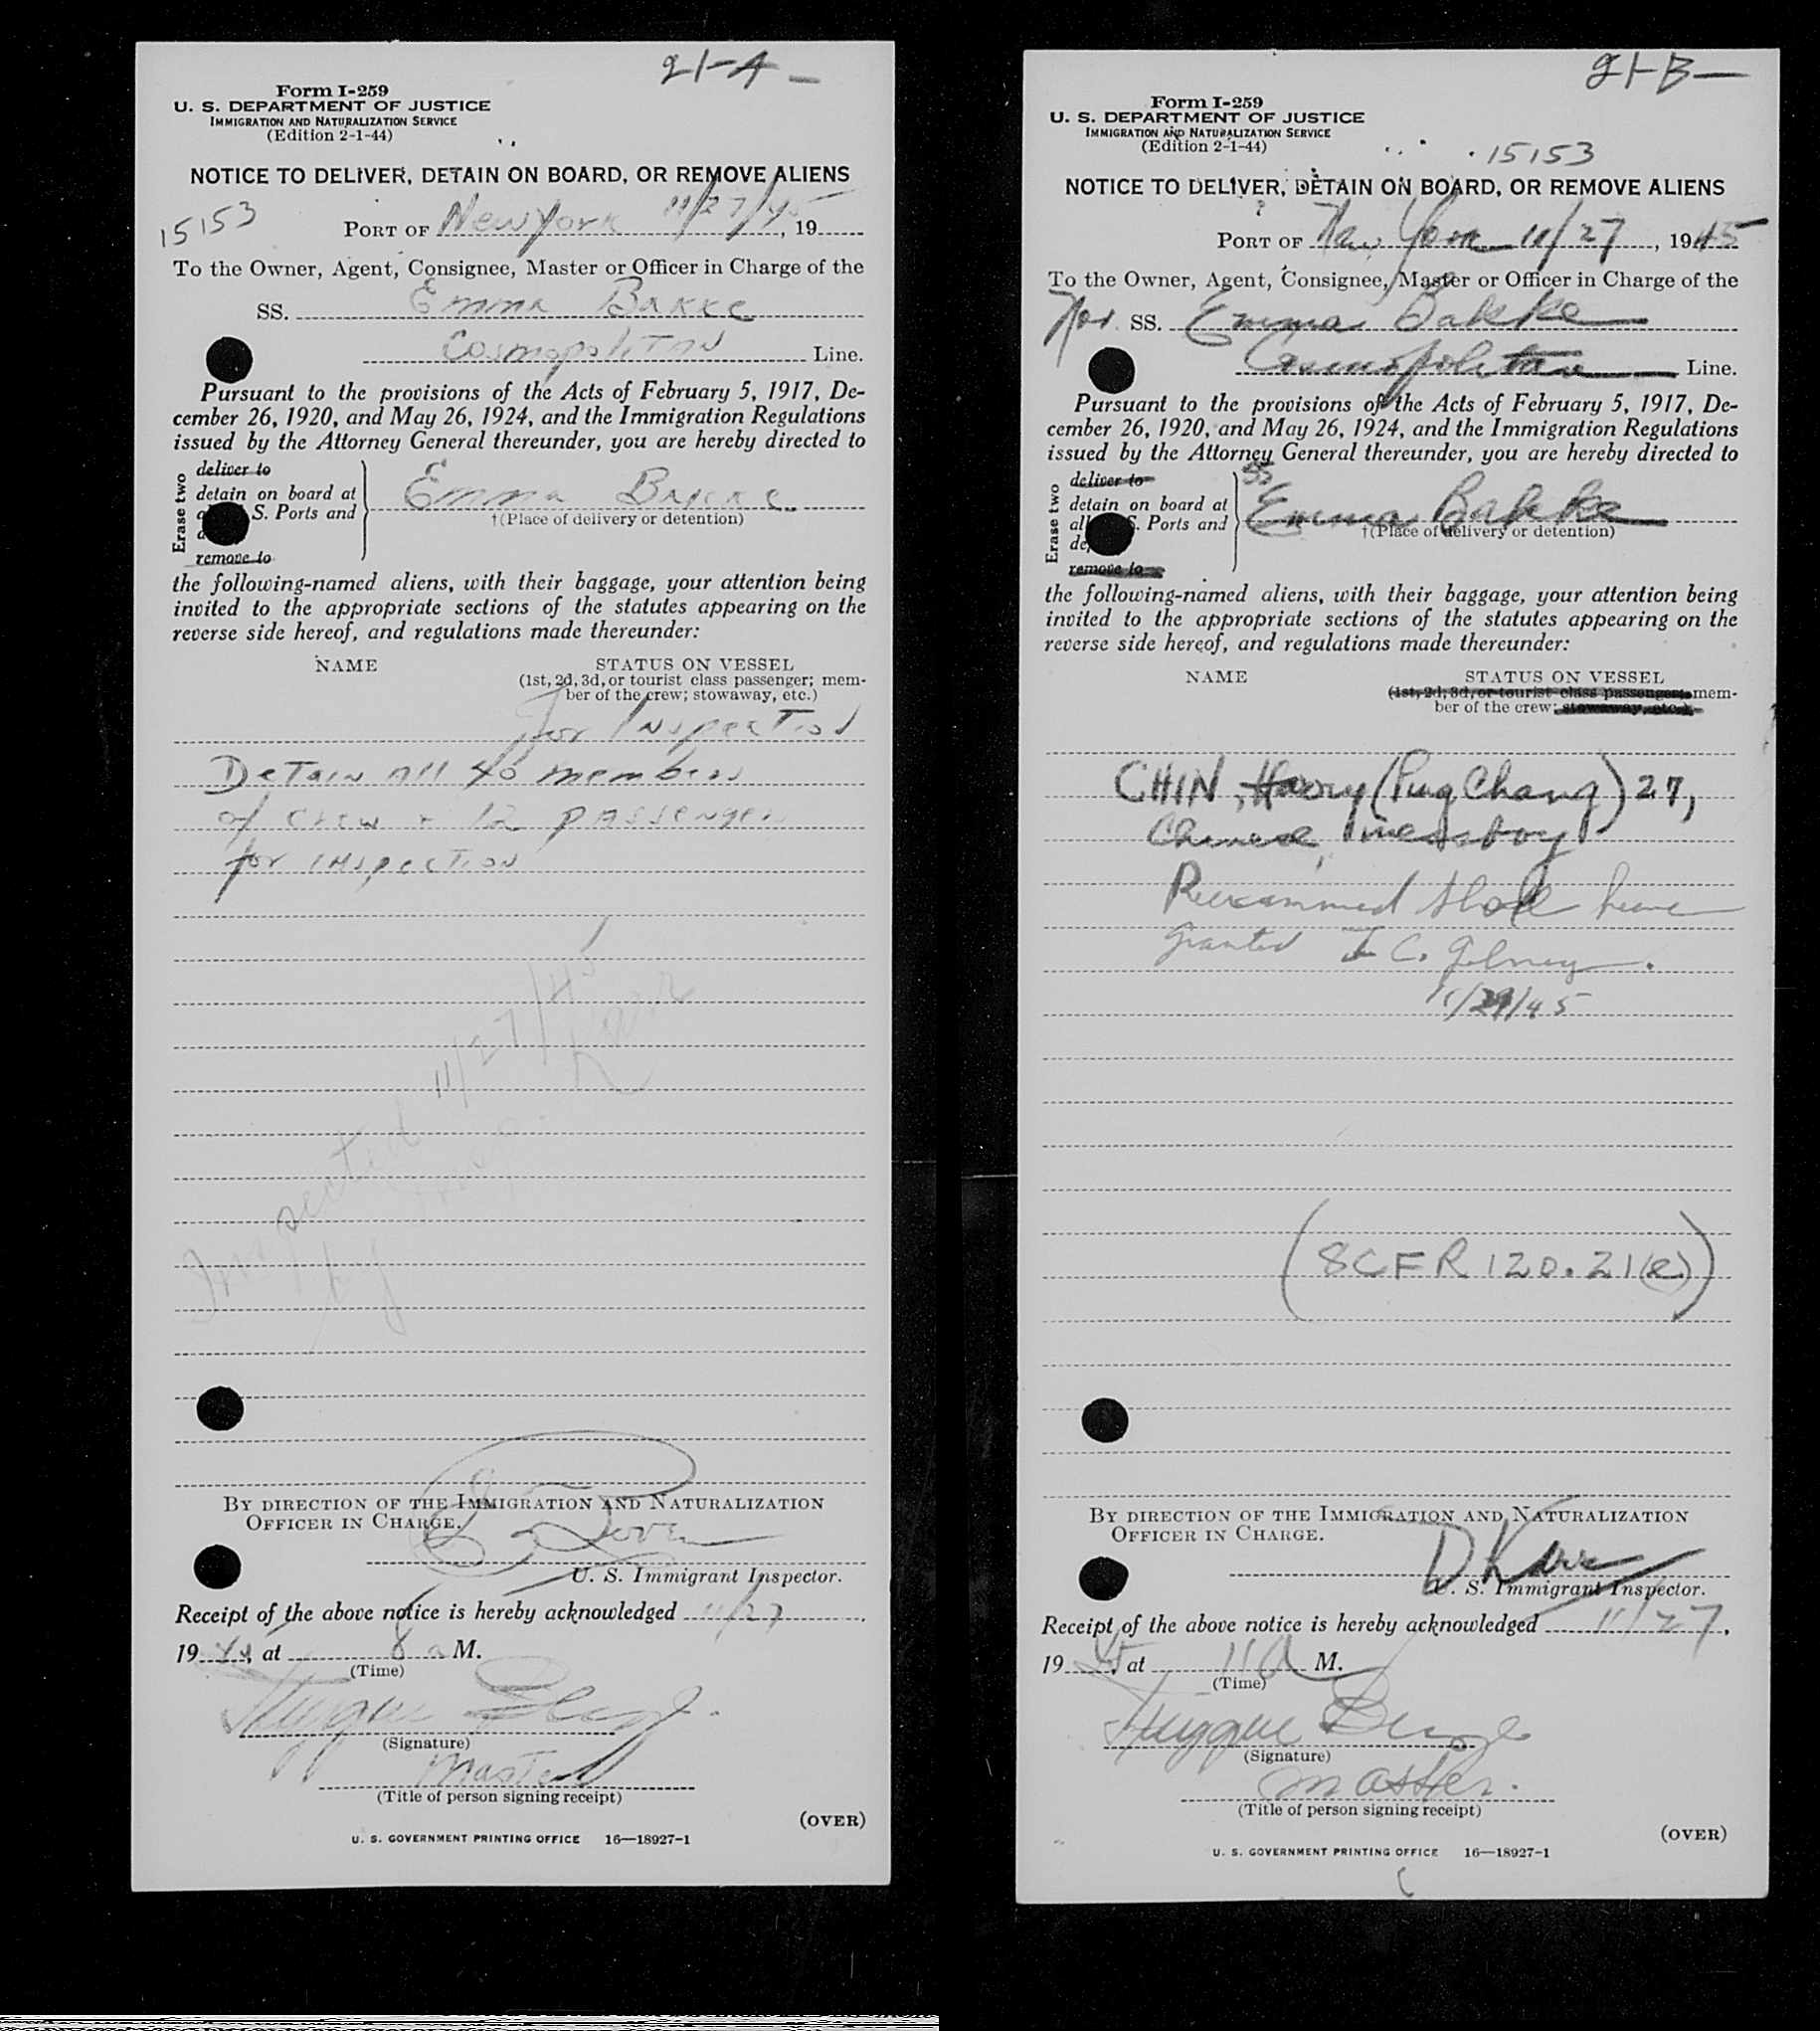 21-A
Form I-259
U. S. DEPARTMENT OF JUSTICE
IMMIGRATION AND NATURALIZATION SERVICE
(Edition 2-1-44)
NOTICE TO DELIVER, DETAIN ON BOARD, OR REMOVE ALIENS
15153
PORT OF New York 11/27/45, 19
To the Owner, Agent, Consignee, Master or Officer in Charge of the
SS. Emma Bakke
Cosmopolitan Line.
Pursuant to the provisions of the Acts of February 5, 1917, De-
cember 26, 1920, and May 26, 1924, and the Immigration Regulations
issued by the Attorney General thereunder, you are hereby directed to
Erase two
deliver to
detain on board at
S. Ports and
remove to
Emma Bakke
†(Place of delivery or detention)
the following-named aliens, with their baggage, your attention being
invited to the appropriate sections of the statutes appearing on the
reverse side hereof, and regulations made thereunder:
NAME STATUS ON VESSEL
(1st, 2d, 3d, or tourist class passenger; mem-
ber of the crew; stowaway, etc.)
for Inspection
Detain all 40 members
of crew + 12 passengers
for inspection
Inspected 11/27/45
by
BY DIRECTION OF THE IMMIGRATION AND NATURALIZATION
OFFICER IN CHARGE.
U. S. Immigrant Inspector.
Receipt of the above notice is hereby acknowledged 11/27,
19, at 8 a M.
(Time)
(Signature)
Master
(Title of person signing receipt)
(OVER)
U. S. GOVERNMENT PRINTING OFFICE 16—18927-1
21-B
Form I-259
U. S. DEPARTMENT OF JUSTICE
IMMIGRATION AND NATURALIZATION SERVICE
(Edition 2-1-44)
15153
NOTICE TO DELIVER, DETAIN ON BOARD, OR REMOVE ALIENS
PORT OF New York 11/27, 1945
To the Owner, Agent, Consignee, Master or Officer in Charge of the
Nor. SS. Emma Bakke
Cosmopolitan Line.
Pursuant to the provisions of the Acts of February 5, 1917, De-
cember 26, 1920, and May 26, 1924, and the Immigration Regulations
issued by the Attorney General thereunder, you are hereby directed to
Erase two
deliver to
detain on board at
S. Ports and
remove to
SS
Emma Bakke
†(Place of delivery or detention)
the following-named aliens, with their baggage, your attention being
invited to the appropriate sections of the statutes appearing on the
reverse side hereof, and regulations made thereunder:
NAME STATUS ON VESSEL
(1st, 2d, 3d, or tourist class passenger; mem-
ber of the crew; stowaway, etc.)
CHIN, Harry (Pug Chang) 27,
Chinese, messboy
Recommend shore leave
granted
11/29/45
(8CFR 120.21(e))
BY DIRECTION OF THE IMMIGRATION AND NATURALIZATION
OFFICER IN CHARGE.
U. S. Immigrant Inspector.
Receipt of the above notice is hereby acknowledged 11/27,
1945, at 11 a M.
(Time)
(Signature)
Master.
(Title of person signing receipt)
(OVER)
U. S. GOVERNMENT PRINTING OFFICE 16—18927-1